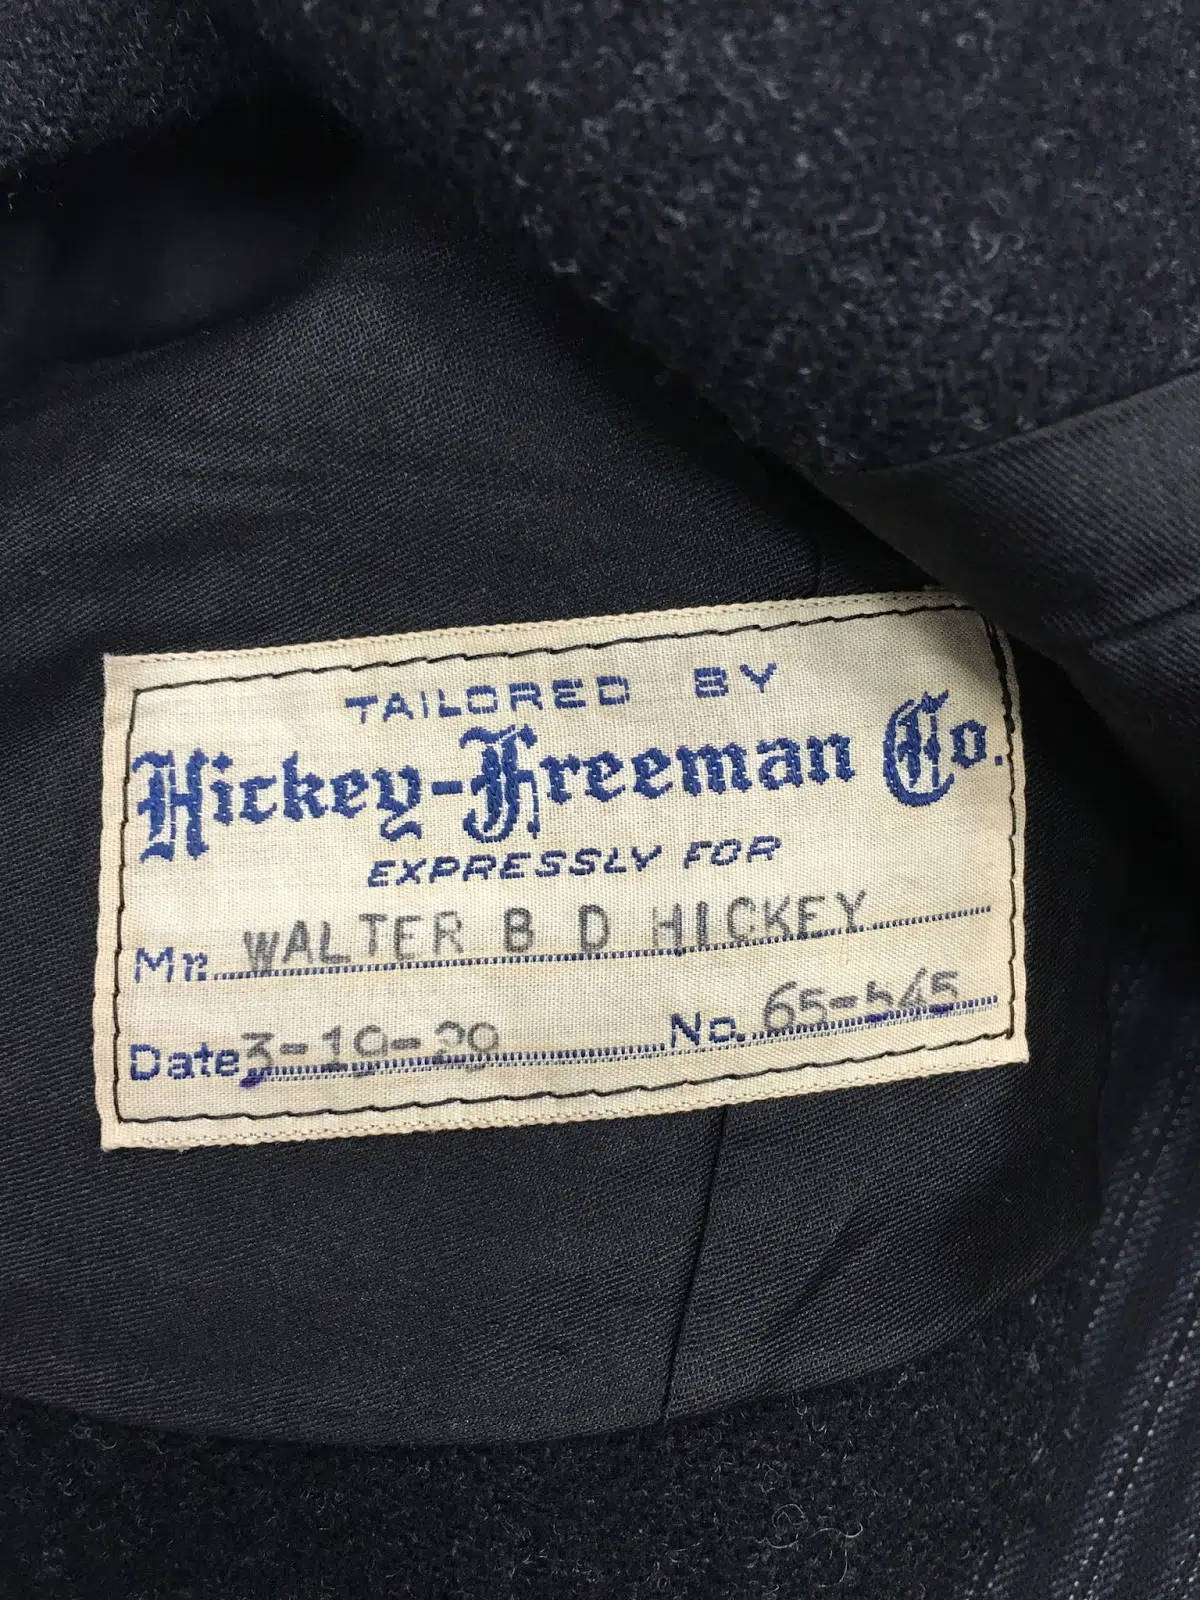 TAILORED BY
Hickey-Freeman Co.
EXPRESSLY FOR
Mr. WALTER B D HICKEY
Date 3-19-29 No. 65-545